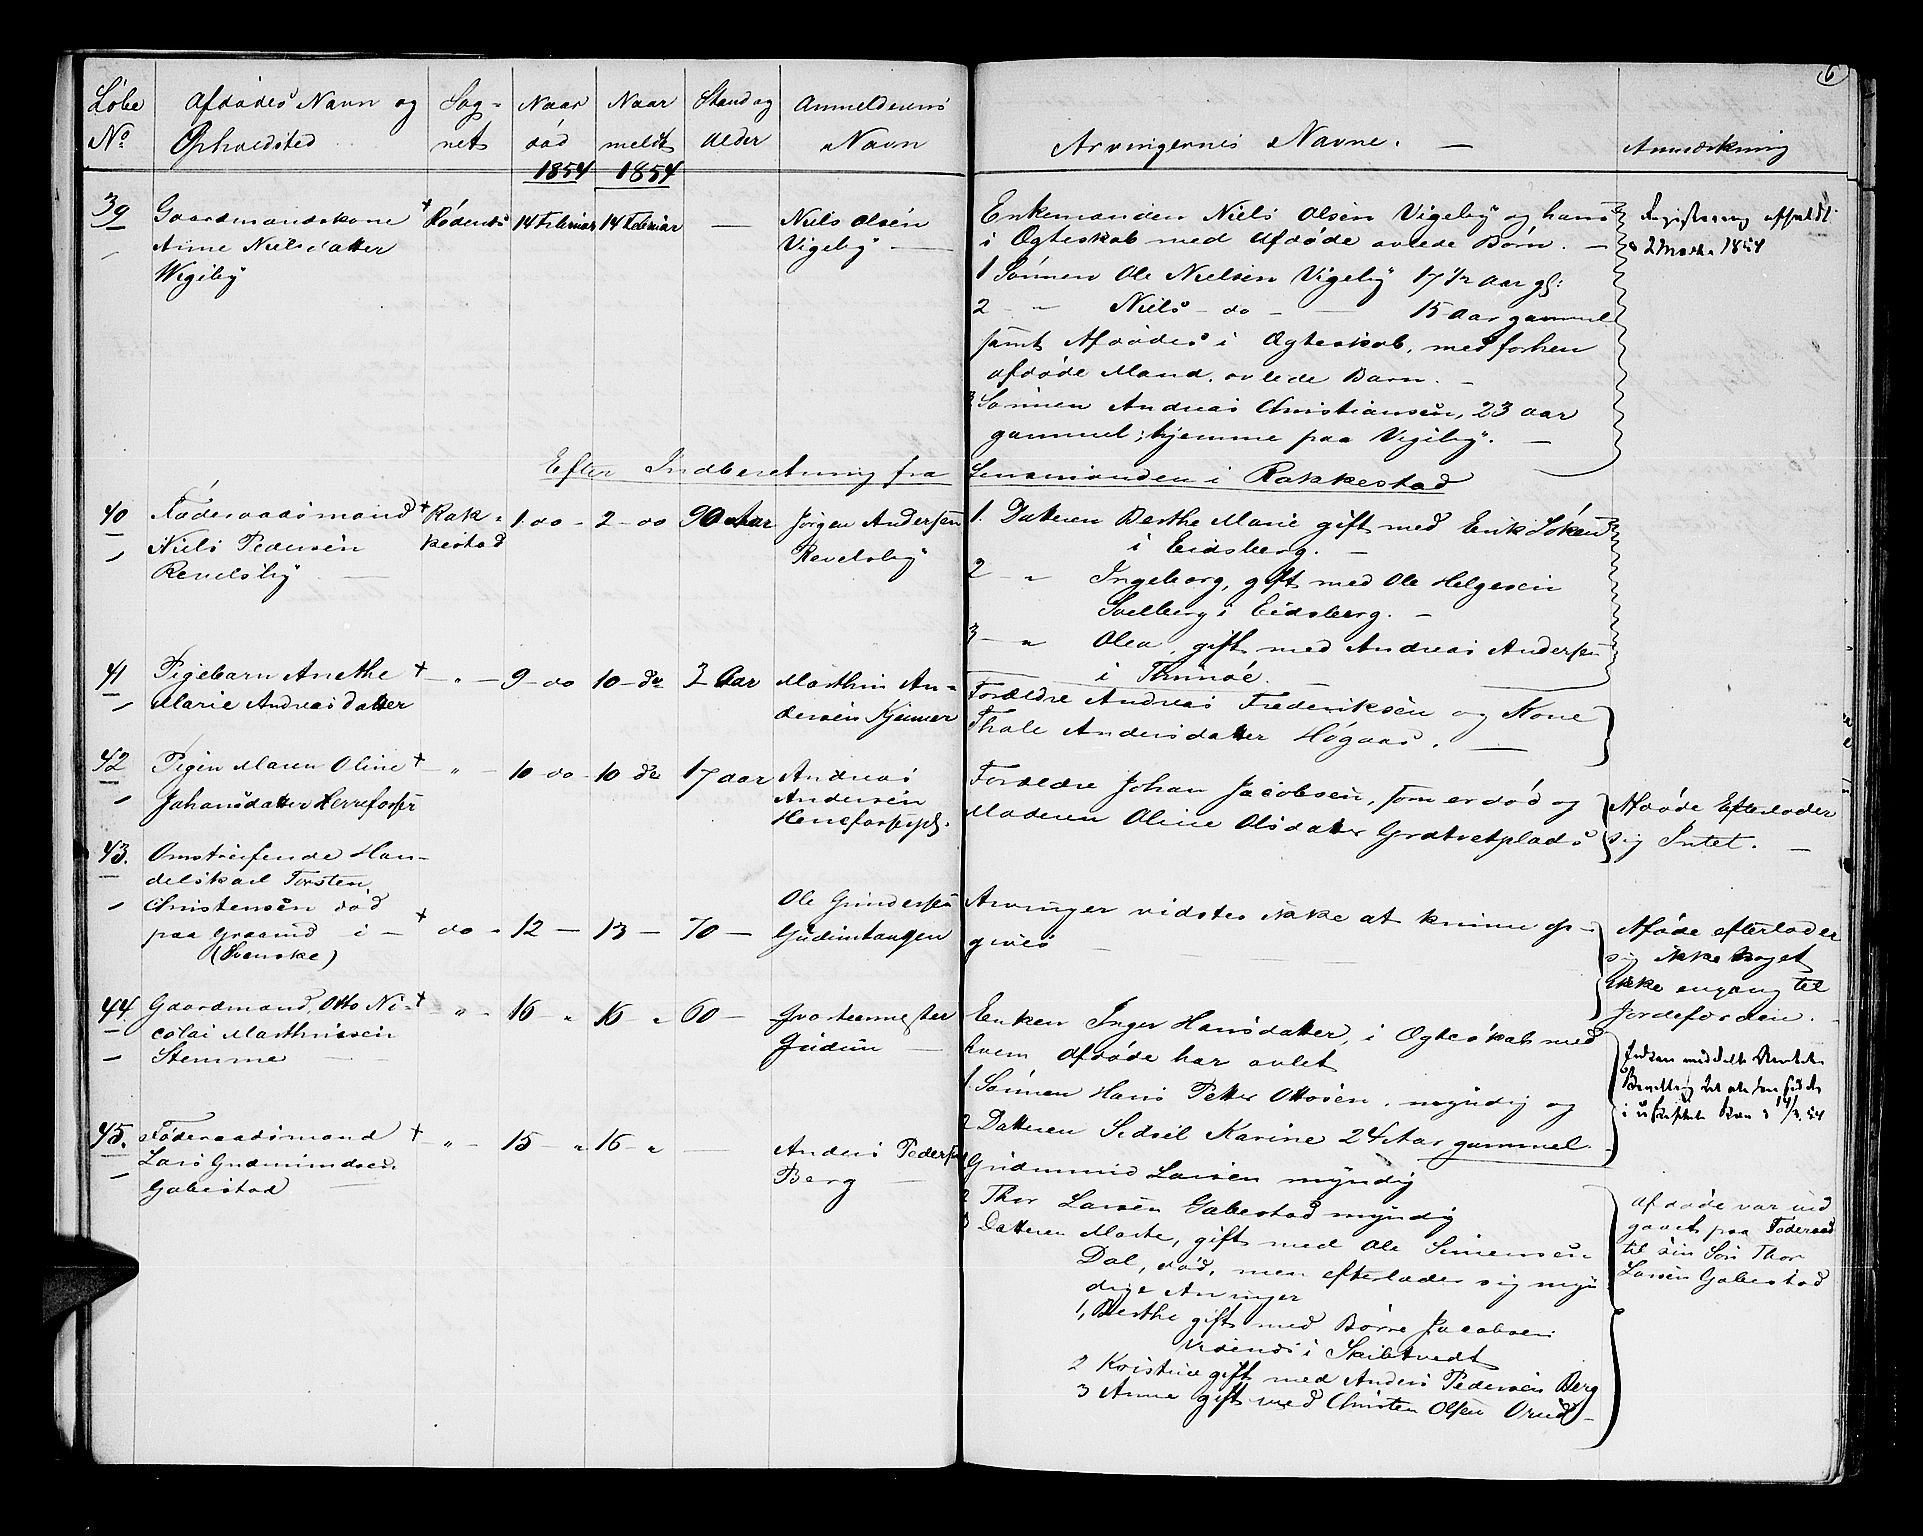 6
Löbe No
Afdödes Navn og Opholdsted
Sognet
Naar död 1854
Naar meldt 1854
Stand og Alder
Anmelderens Navn
Arvingernes Navne. —
Anmærkning
39
Gaardmandskone
Anne Nielsdatter
Wigeby
Rödenæs
14 Februar
14 Februar
—
Niels Olsen
Vigeby —
Enkemanden Niels Olsen Vigeby og hans
i Ægteskab med Afdöde avlede Börn. —
1 Sönnen Ole Nielsen Vigeby 17 1/2 Aar gl:
2 - " Niels - do - 15 Aar gammel
samt Afdödes i Ægteskab, med forhen
afdöde Mand, avlede Barn. —
3 Sönnen Andreas Christiansen, 23 aar
gammel; hjemme paa Vigeby. —
Registrering afholdt
2 Marts 1854
Efter Indberetning fra Lensmanden i Rakkestad
40
Föderaadsmand
Niels Pedersen
Revelsby —
† Rakkestad
1 - do -
2 - do
90 Aar
Jörgen Andersen
Revelsby
1. Datteren Berthe Marie gift med Erik Löken
i Eidsberg. —
2 - " Ingeborg, gift med Ole Helgesen
i Eidsberg. —
3 - " Olea, gift med Andreas Andersen
i Thunöe. —
41
Pigebarn Anethe †
Marie Andreasdatter
- " -
9 - do
10 - do
3 Aar
Marthin Andersen Kjenner
Forældre Andreas Frederiksen og Kone
Thale Andersdatter Högaas. —
42
Pigen Maren Oline †
Johansdatter Herrefosser
- " -
10 - do -
10 do
17 aar
Andreas
Andersen
Herrefossepl.
Forældre Johan Jacobsen, som er död og
Moderen Oline Olsdatter Grötvetplads
Afdöde Efterlader
sig Intet. —
43.
Omstreifende Handelskarl Torsten
Christensen död
paa Graaud i — †
(Svenske)
do -
12 —
13 —
70 —
Ole Gundersen
Gudimtangen
Arvinger vidstes ikke at kunne opgives —
Afdöde efterlader
sig ikke noget
ikke engang til
Jordefærden. —
44.
Gaardmand Otto Nicolai Marthinsen †
Stemme —
" -
16 - "
16 "
60 —
Qvarteermester
Gudim —
Enken Inger Hansdatter, i Ægteskab med
hvem Afdöde har avlet
1. Sönnen Hans Petter Ottosen, myndig og
2 Datteren Sidsel Karine 24 Aar gammel.
Enken meddelt
i uskiftet Bo 54
45.
Föderaadsmand †
Lars Gudmundsen
Gabestad —
- " -
15 - "
16 - "
—
Anders Pedersen
Berg —
1 Gudmund Larsen myndig
2 Thor Larsen Gabestad myndig
3 Datteren Marte, gift med Ole Simensen
Dal, död, men efterlader sig myndige Arvinger
1, Berthe gift med Börre Jacobsen
i Skibtvedt
2 Kristine gift med Anders Pedersen Berg
3 Anne gift med Christen Olsen
Afdöde var indgaaet paa Föderaad
til sin Sön Thor
Larsen Gabestad